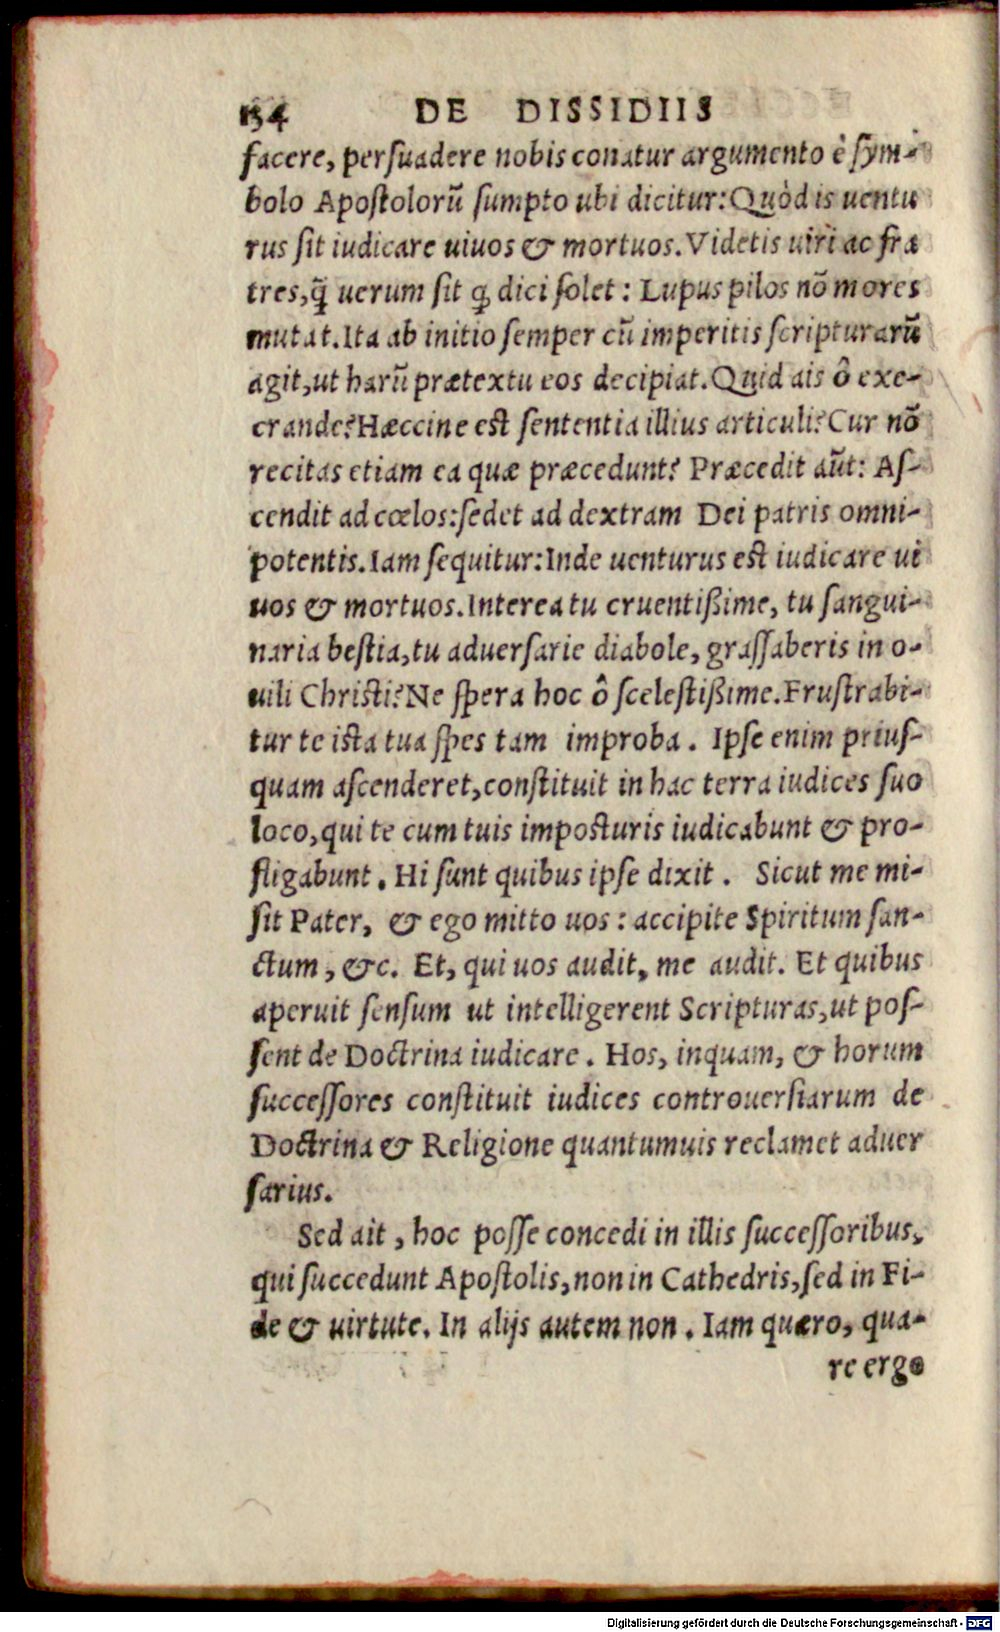 154 DE DISSIDIIS
facere, persuadere nobis conatur argumento è sym-
bolo Apostolorũ sumpto ubi dicitur: Quòd is uentu
rus sit iudicare uiuos & mortuos. Videtis uiri ac fra
tres, q̃ uerum sit ꝙ dici solet: Lupus pilos nõ mores
mutat. Ita ab initio semper cũ imperitis scripturarũ
agit, ut harũ prætextu eos decipiat. Quid ais ô exe-
crande? Hæccine est sententia illius articuli? Cur nõ
recitas etiam ea quæ præcedunt? Præcedit aũt: As-
cendit ad cœlos: sedet ad dextram Dei patris omni-
potentis. Iam sequitur: Inde uenturus est iudicare ui
uos & mortuos. Interea tu cruentißime, tu sangui-
naria bestia, tu aduersarie diabole, grassaberis in o-
uili Christi? Ne spera hoc ô scelestißime. Frustrabi-
tur te ista tua spes tam improba. Ipse enim prius-
quam ascenderet, constituit in hac terra iudices suo
loco, qui te cum tuis imposturis iudicabunt & pro-
fligabunt. Hi sunt quibus ipse dixit. Sicut me mi-
sit Pater, & ego mitto uos: accipite Spiritum san-
ctum, &c. Et, qui uos audit, me audit. Et quibus
aperuit sensum ut intelligerent Scripturas, ut pos-
sent de Doctrina iudicare. Hos, inquam, & horum
successores constituit iudices controuersiarum de
Doctrina & Religione quantumuis reclamet aduer
sarius.
Sed ait, hoc posse concedi in illis successoribus,
qui succedunt Apostolis, non in Cathedris, sed in Fi-
de & uirtute. In alijs autem non. Iam quæro, qua-
re ergo
Digitalisierung gefördert durch die Deutsche Forschungsgemeinschaft - DFG